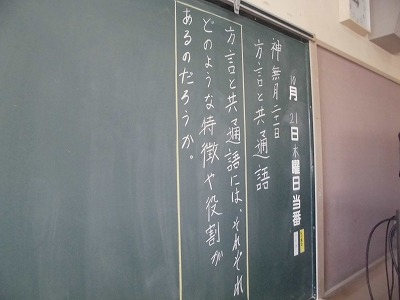 10月21日木曜日当番
神無月二十一日
方言と共通語
方言と共通語には、それぞれ
どのような特徴や役割が
あるのだろうか。